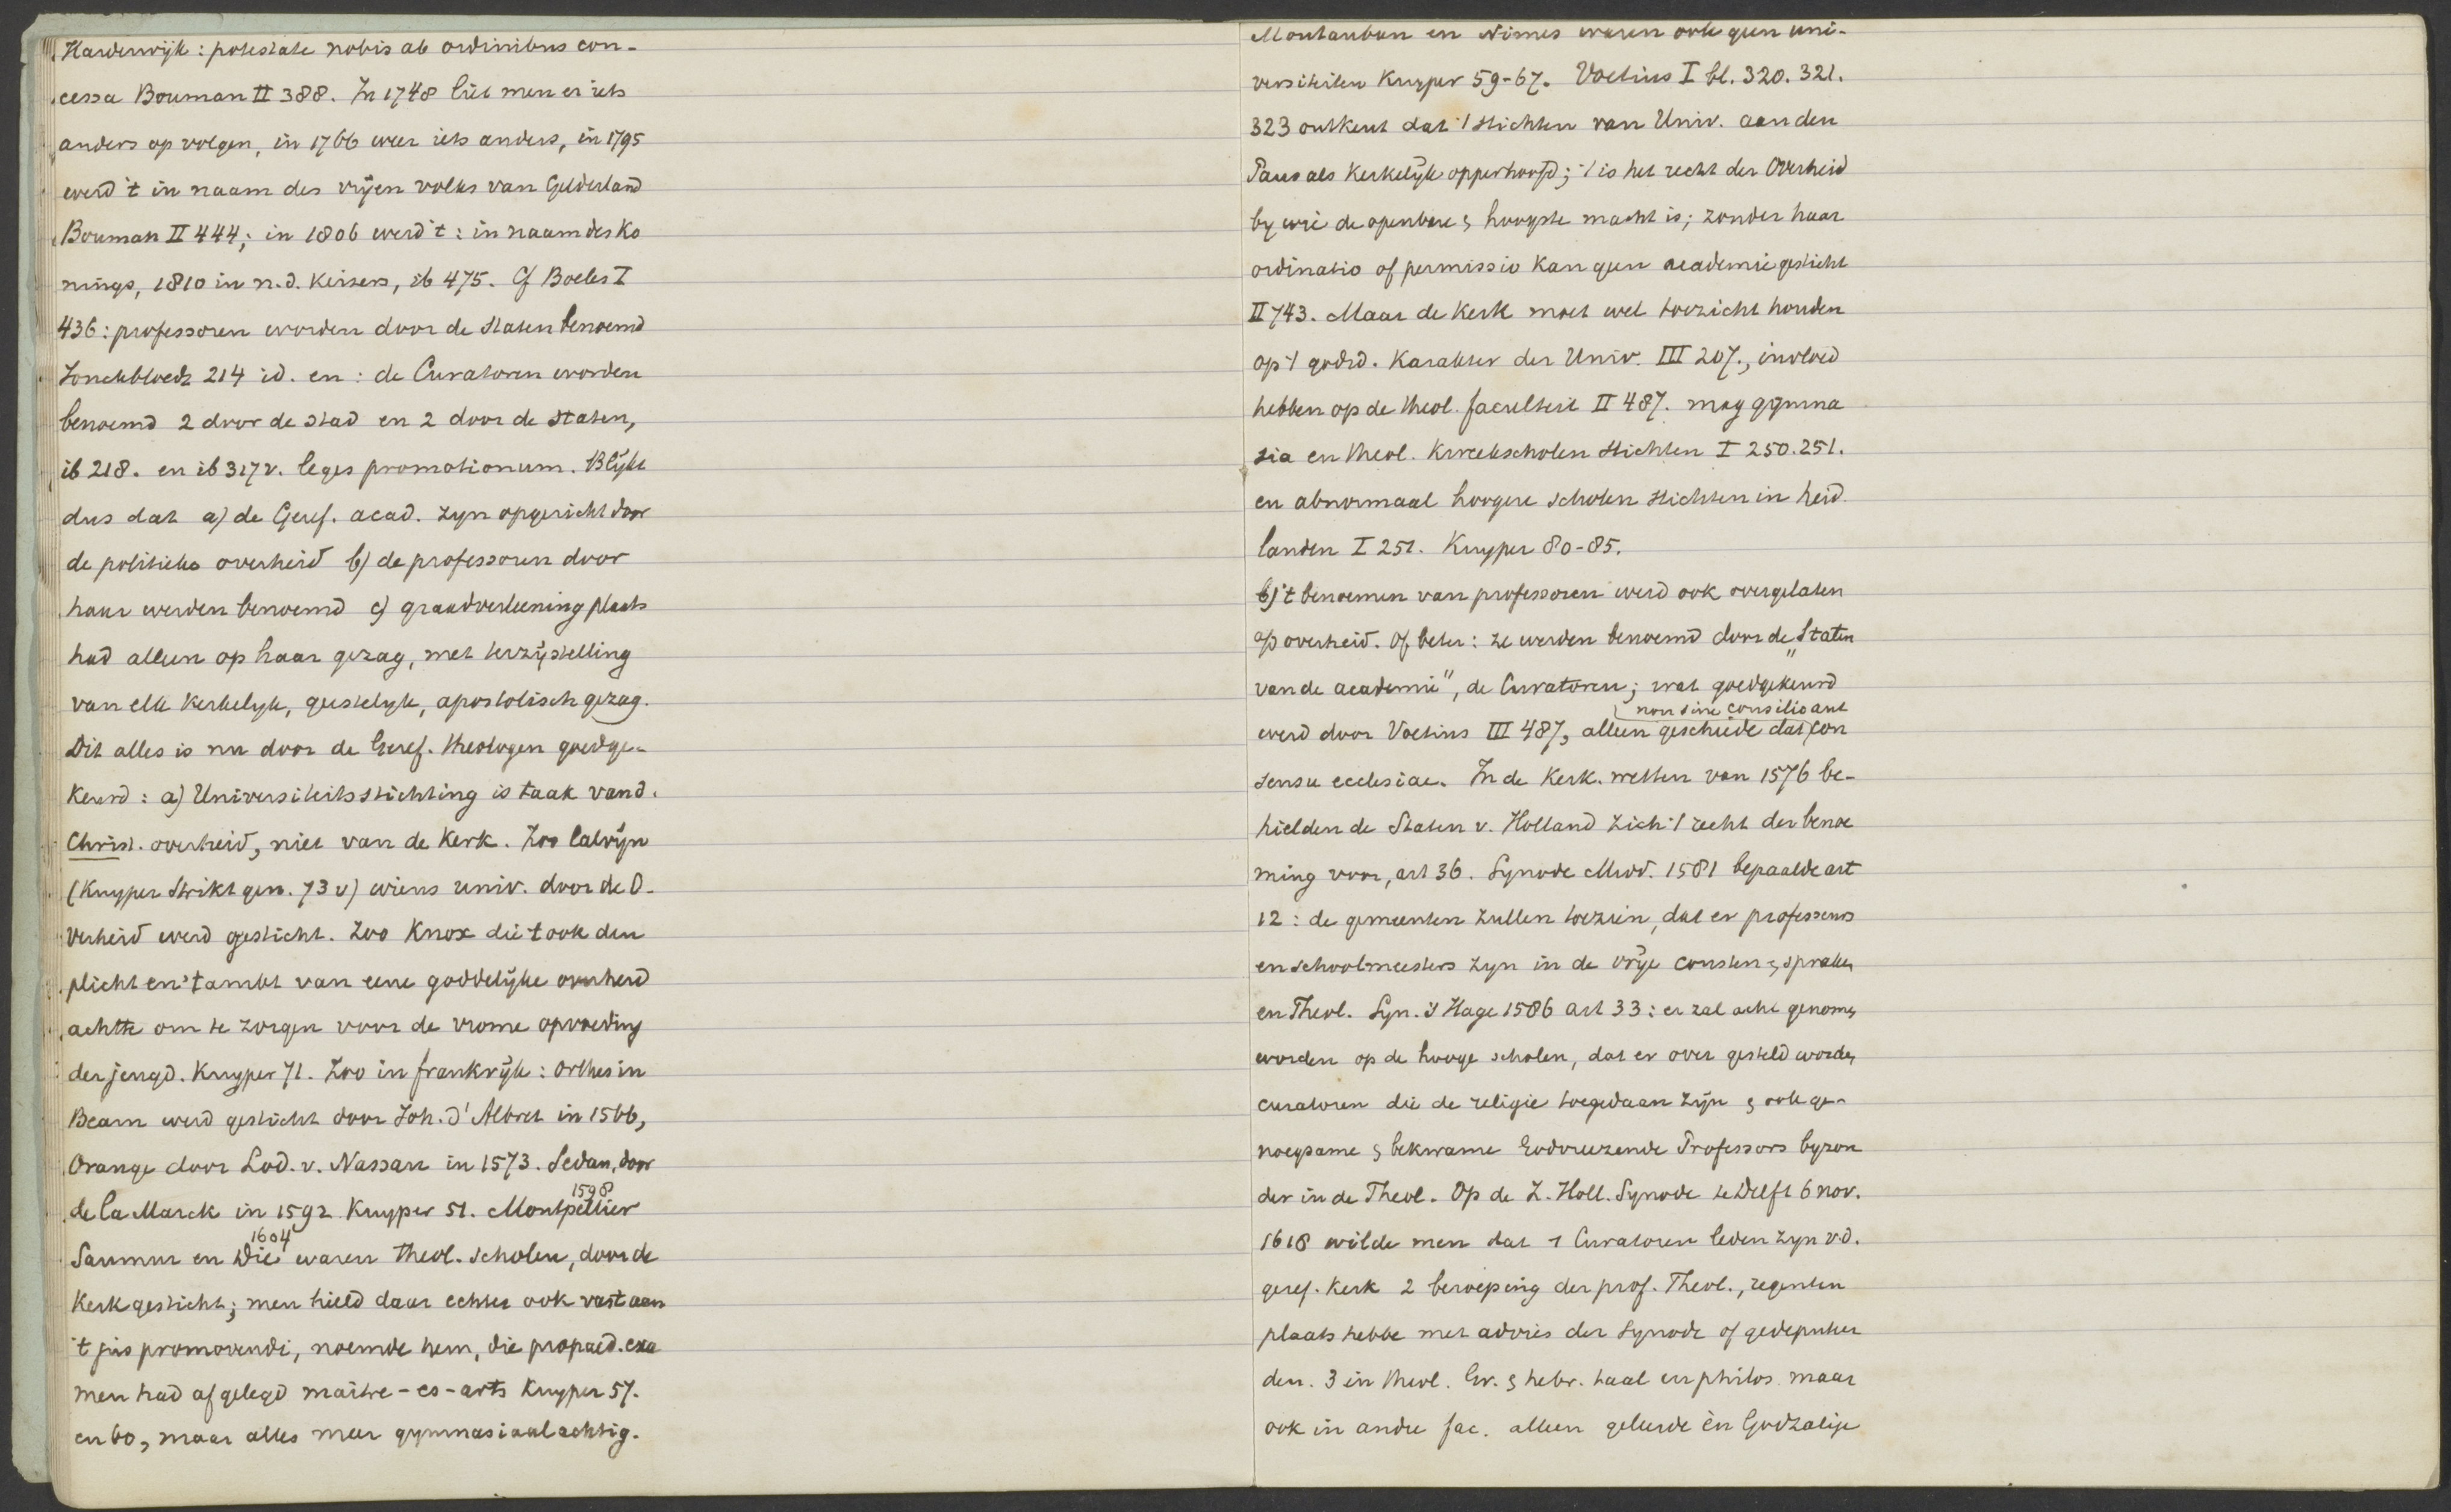 Harderwijk: potestate nobis ab ordinibus con-
cessa Bouman II 388. In 1748 liet men er iets
anders op volgen, in 1766 weer iets anders, in 1795
werd 't in naam des vrijen volks van Gelderland
Bouman II 444; in 1806 werd 't: in naam des Ko
nings, 1810 in n.d. Keisers, ib 475. Cf Boeles I
436: professoren worden door de Staten benoemd
Jonckbloedt 214 id. en: de Curatoren worden
benoemd 2 door de stad en 2 door de Staten,
ib 218. en ib 317v. leges promotionum. Blijkt
dus dat a) de Geref. acad. zyn opgericht door
de politieke overheid b) de professoren door
haar werden benoemd c) graadverleening plaats
had alleen op haar gezag, met terzijstelling
van elk kerkelyk, geestelyk, apostolisch gezag.
Dit alles is nu door de Geref. theologen goedge-
keurd: a) Universiteitsstichting is taak van d.
Christ. overheid, niet van de Kerk. Zoo Calvijn
(Kuyper Strikt gen. 73 v) wiens univ. door de O-
verheid werd gesticht. Zoo Knox die 't ook den
plicht en 't ambt van eene goddelijke overheid
achtte om te zorgen voor de vrome opvoeding
der jeugd. Kuyper 71. Zoo in frankrijk: Orthes in
Bearn werd gesticht door Joh. d'Albret in 1566,
Orange door Lod. v. Nassau in 1573. Sedan, door
de la Marck in 1592 Kuyper 51. Montpellier 1598
Saumur en Die 1604 waren theol. scholen, door de
Kerk gesticht; men hield daar echter ook vast aan
't jus promovendi, noemde hem, die propaed. exa
men had afgelegd maître-es-arts Kuyper 57.
en 60, maar alles meer gymnasiaalachtig.
Montauban en Nimes waren ook geen uni-
versiteiten Kuyper 59-67. Voetius I bl. 320. 321.
323 ontkent dat 't stichten van Univ. aan den
Paus als Kerkelijk opperhoofd; 't is het recht der Overheid
by wie de openbare & hoogste macht is; zonder haar
ordinatio of permissio kan geen academie gesticht
II 743. Maar de Kerk moet wel toezicht houden
op 't godsd. Karakter der Univ. III 207., invloed
hebben op de theol. faculteit II 487. mag gymna
sia en theol. Kweekscholen stichten I 250. 251.
en abnormaal hoogere scholen stichten in heid.
landen I 251. Kuyper 80-85.
b) 't benoemen van professoren werd ook overgelaten
a/d overheid. Of beter: ze werden benoemd door de „Staten
van de academie", de Curatoren; wat goedgekeurd
werd door Voetius III 487, alleen geschiede dat non sine consilio aut con
sensu ecclesiae. In de Kerk. wetten van 1576 be-
hielden de Staten v. Holland zich 't recht der benoe
ming voor, art 36. Synode Midd. 1581 bepaalde art
12: de gemeenten zullen toezien, dat er professoors
en schoolmeesters zyn in de vrije consten & spraken
en Theol. Syn. 's Hage 1586 art 33: er zal acht genomen
worden op de hooge scholen, dat er over gesteld worden
curatoren die de religie toegedaan zijn & ook ge-
noegsame & bekwame Godvreezende Professors byzon
der in de Theol. Op de Z. Holl. Synode te Delft 6 nov.
1618 wilde men dat 1 Curatoren leden zyn v.d.
geref. Kerk 2 beroeping der prof. Theol., regenten
plaats hebbe met advies der Synode of gedeputeer
den. 3 in theol. Gr. & hebr. taal en philos. maar
ook in andre fac. alleen geleerde èn Godzalige